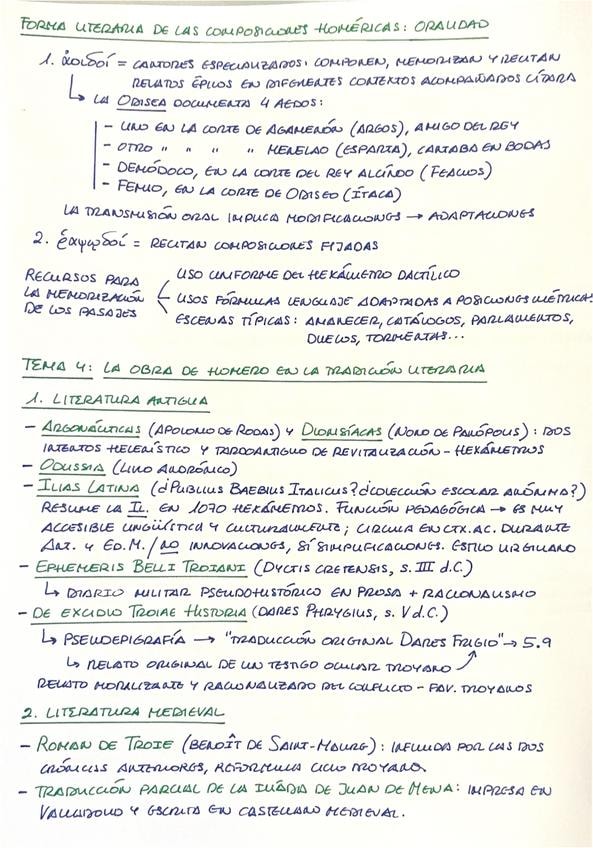 FORMA LITERARIA DE LAS COMPOSICIONES HOMÉRICAS: ORALIDAD
1. ἀοιδοί = CANTORES ESPECIALIZADOS: COMPONEN, MEMORIZAN Y RECITAN
RELATOS ÉPICOS EN DIFERENTES CONTEXTOS ACOMPAÑADOS CÍTARA
↳ LA ODISEA DOCUMENTA 4 AEDOS:
- UNO EN LA CORTE DE AGAMENÓN (ARGOS), AMIGO DEL REY
- OTRO " " " " MENELAO (ESPARTA), CANTABA EN BODAS
- DEMÓDOCO, EN LA CORTE DEL REY ALCÍNOO (FEACIOS)
- FEMIO, EN LA CORTE DE ODISEO (ÍTACA)
LA TRANSMISIÓN ORAL IMPLICA MODIFICACIONES → ADAPTACIONES
2. ῥαψῳδοί = RECITAN COMPOSICIONES FIJADAS
RECURSOS PARA
LA MEMORIZACIÓN
DE LOS PASAJES
USO UNIFORME DEL HEXÁMETRO DACTÍLICO
USOS FÓRMULAS LENGUAJE ADAPTADAS A POSICIONES MÉTRICAS
ESCENAS TÍPICAS: AMANECER, CATÁLOGOS, PARLAMENTOS,
DUELOS, TORMENTAS...
TEMA 4: LA OBRA DE HOMERO EN LA TRADICIÓN LITERARIA
1. LITERATURA ANTIGUA
- ARGONÁUTICAS (APOLONIO DE RODAS) Y DIONISÍACAS (NONO DE PANÓPOLIS): DOS
INTENTOS HELENÍSTICO Y TARDOANTIGUO DE REVITALIZACIÓN - HEXÁMETROS
- ODUSSIA (LIVIO ANDRÓNICO)
- ILIAS LATINA (¿PUBLIUS BAEBIUS ITALICUS? ¿COLECCIÓN ESCOLAR ANÓNIMA?)
RESUME LA IL. EN 1070 HEXÁMETROS. FUNCIÓN PEDAGÓGICA → ES MUY
ACCESIBLE LINGÜÍSTICA Y CULTURALMENTE; CIRCULA EN CTX. AC. DURANTE
ANT. Y ED. M. / NO INNOVACIONES, SÍ SIMPLIFICACIONES. ESTILO VIRGILIANO
- EPHEMERIS BELLI TROIANI (DYCTIS CRETENSIS, S. III d.C.)
↳ DIARIO MILITAR PSEUDOHISTÓRICO EN PROSA + RACIONALISMO
- DE EXCIDIO TROIAE HISTORIA (DARES PHRYGIUS, S. V d.C.)
↳ PSEUDEPIGRAFÍA → "TRADUCCIÓN ORIGINAL DARES FRIGIO" → 5.9
↳ RELATO ORIGINAL DE UN TESTIGO OCULAR TROYANO
RELATO MORALIZANTE Y RACIONALIZADO DEL CONFLICTO - FAV. TROYANOS
2. LITERATURA MEDIEVAL
- ROMAN DE TROIE (BENOÎT DE SAINT-MAURE): INFLUIDA POR LAS DOS
CRÓNICAS ANTERIORES, REFORMULA CICLO TROYANO.
- TRADUCCIÓN PARCIAL DE LA ILIADA DE JUAN DE MENA: IMPRESA EN
VALLADOLID Y ESCRITA EN CASTELLANO MEDIEVAL.